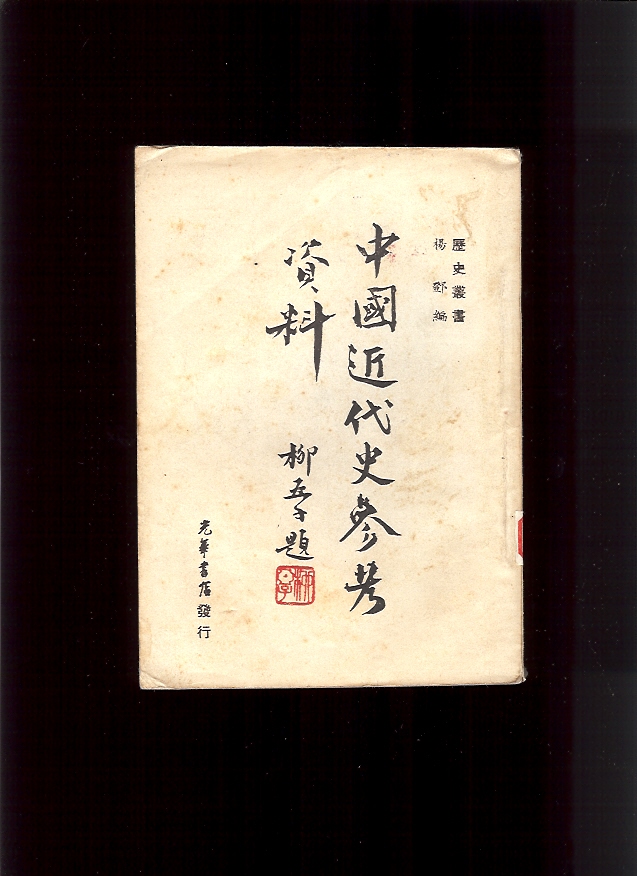 歷史叢書
楊鄧編
中國近代史參考
資料
柳亞子題
光華書店發行